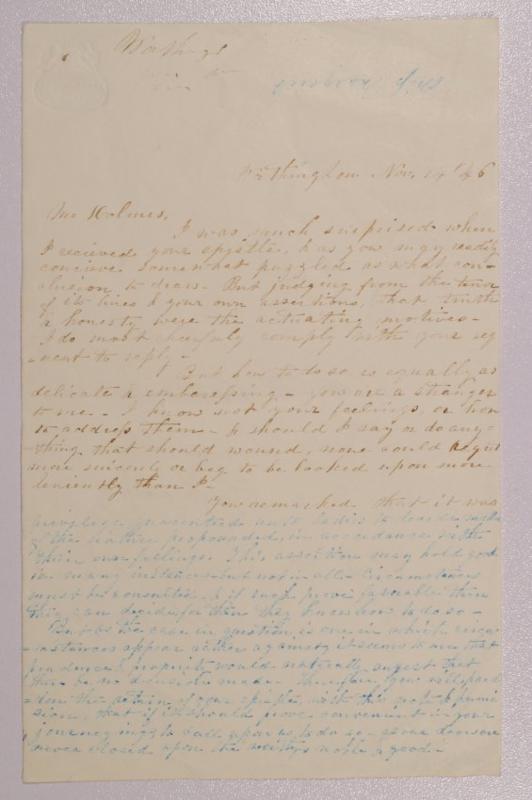 Worthington Nov. 14th 46
Mr Holmes,
I was much surprised when
I recieved your epistle, & as you may readily
concieve somewhat puzzled as what con-
clusion to draw. But judging from the tenor
of its lines & your own assertions, that truth
& honesty were the actuating motives -
I do most cheerfully comply with your req
uest to reply -
But how to do so is equally as
delicate & embarrassing - you are a stranger
to me - I know not your feelings, or how
to address them - & should I say or do any-
-thing that should wound, none could regret
more sincerely or beg to be looked upon more
leniently than I -
You remarked that it was
privilege presented unto ladies to
of the nature propounded, in accordance with
their own feelings. This assertion may hold good
in many instances but not in all - Circumstances
must be consulted & if such prove favorable then
they can decide for then they know how to do so -
But as the case in question, is one in which circum
-instances appear rather against it seems to me that
prudence & propriety would naturally sugest that
there be no decision made - Therefore you will pardon
the return of your epistle, with this note & permis
sion, that if it should prove convenient in your
journeyings to call upon us, to do so - as our door is
never closed upon the noble & good -